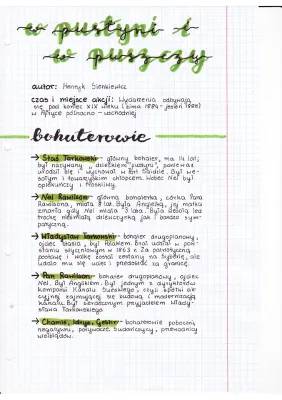 w pustyni i
w puszczy
autor: Henryk Sienkiewicz
czas i miejsce akcji: Wydarzenia odbywają
się pod koniec XIX wieku (zima 1884 - jesień 1885)
w Afryce północno - wschodniej
bohaterowie
→ Staś Tarkowski - główny bohater, ma 14 lat;
był nazywany „dzieckiem pustyni", ponieważ
urodził się i wychował w Port Saidzie. Był we-
sołym i towarzyskim chłopcem. Wobec Nel był
opiekuńczy i troskliwy.
→ Nel Rawlison - główna bohaterka, córka Pana
Rawlisona, miała 8 lat. Była Angielką, jej matka
zmarła gdy Nel miała 3 lata. Była
trochę nieśmiałą dziewczynką, jak i bardzo sym-
patyczną.
→ Władysław Tarkowski - bohater drugoplanowy,
ojciec Stasia, był Polakiem. Brał udział w pow-
staniu styczniowym w 1863 r. Za patriotyczną
postawę i walkę został zesłany na Syberię, ale
udało mu się uciec i przedostać za granicę.
→ Pan Rawlison - bohater drugoplanowy, ojciec
Nel. Był Anglikiem. Był jednym z dyrektorów
Kompanii Kanału Sueskiego, czyli spółki ak-
cyjnej zajmującej się budową i modernizacją
kanału. Był serdecznym przyjacielem Włady-
sława Tarkowskiego
→ Chamis, Idrys, Gebhr - bohaterowie poboczni,
negatywni, porywacze Sudańczycy, przewodnicy
wielbłądów.